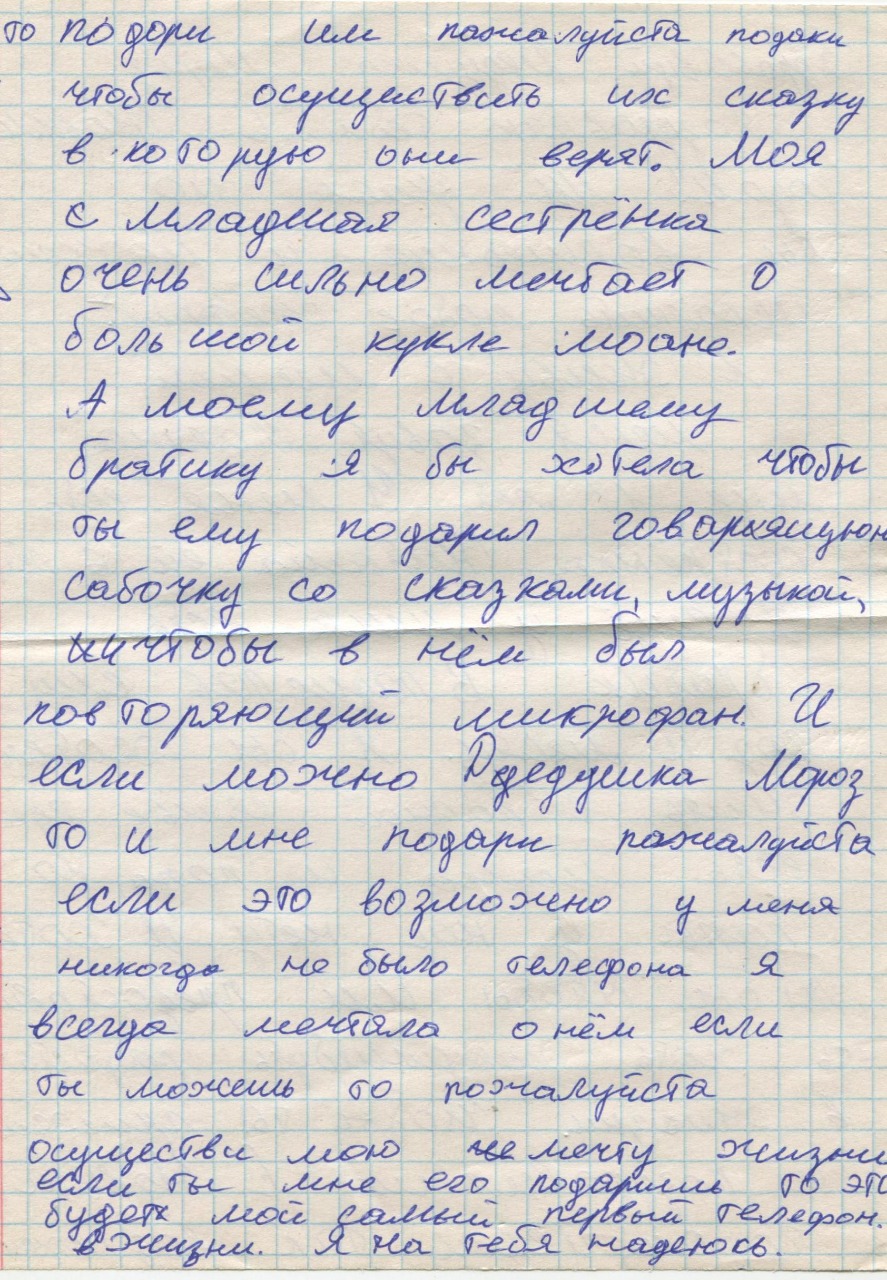 то подори им пажалуйста подаки
чтобы осуществить их сказку
в которую они верят. Моя
с младшая сестрёнка
очень сильно мечтает о
большой кукле моане.
А моему младшему
братику я бы хотела чтобы
ты ему подарил говарящюю
сабочку со сказками, музыкой,
и чтобы в нём был
повторяющий микрофан. И
если можно Дедушка Мороз
то и мне подари пажалуйста
если это возможно у меня
никогда не было телефона я
всегда мечтала о нём если
ты можешь то пожалуйста
осуществи мою мечту жизни
если ты мне его подаришь то это
будет мой самый первый телефон.
в жизни. Я на тебя надеюсь.